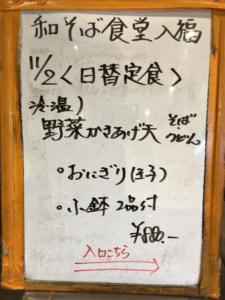 和そば食堂 入福
11/2 〈日替定食〉
冷・温)
野菜かきあげ天 そば・うどん
・おにぎり(玉子)
・小鉢 2品付
入口こちら